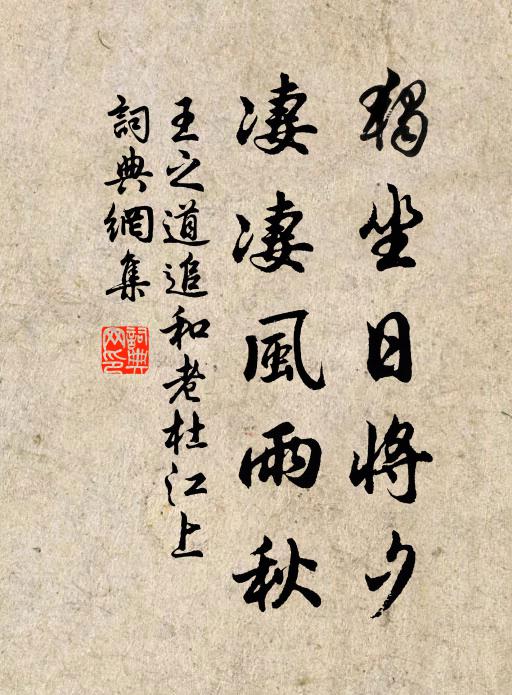 獨坐日將夕
凄凄風雨秋
王之道追和老杜江上
詞典網集
詞典網印